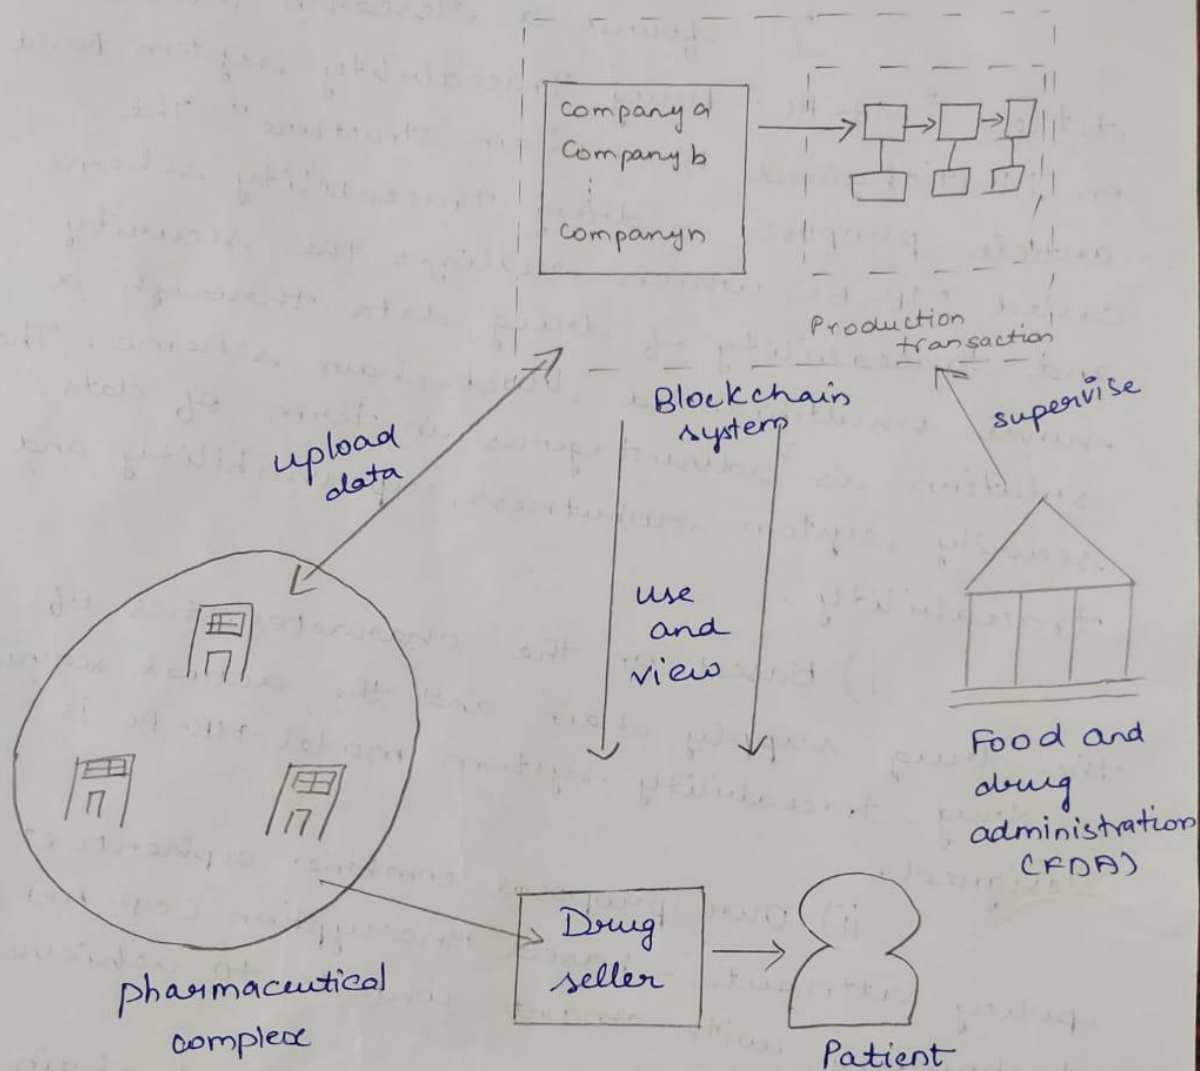 company a
Company b
companyn
Production
transaction
Blockchain
system
supervise
upload
data
use
and
view
Food and
drug
administration
(FDA)
Drug
seller
pharmaceutical
complex
Patient